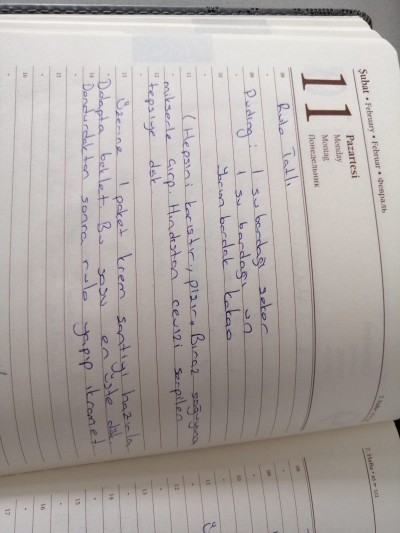 Şubat • February • Februar • Февраль
11
Pazartesi
Monday
Montag
Понедельник
08 Rulo Tatlı
09 Puding: 1 su bardağı şeker
1 su bardağı un
10 Yarım bardak kakao
11 (Hepsini karıştır, pişir. Biraz soğuyunca
mikserle çırp. Hindistan cevizi serpilen
12 tepsiye dök.
13 Üzerine 1 paket krem şantiyi hazırla
Dolapta beklet. Bu sosu en üste dök
14 Dondurduktan sonra rulo yapıp ikram et.
15
16
08
09
10
11
12
13
14
15
16
17